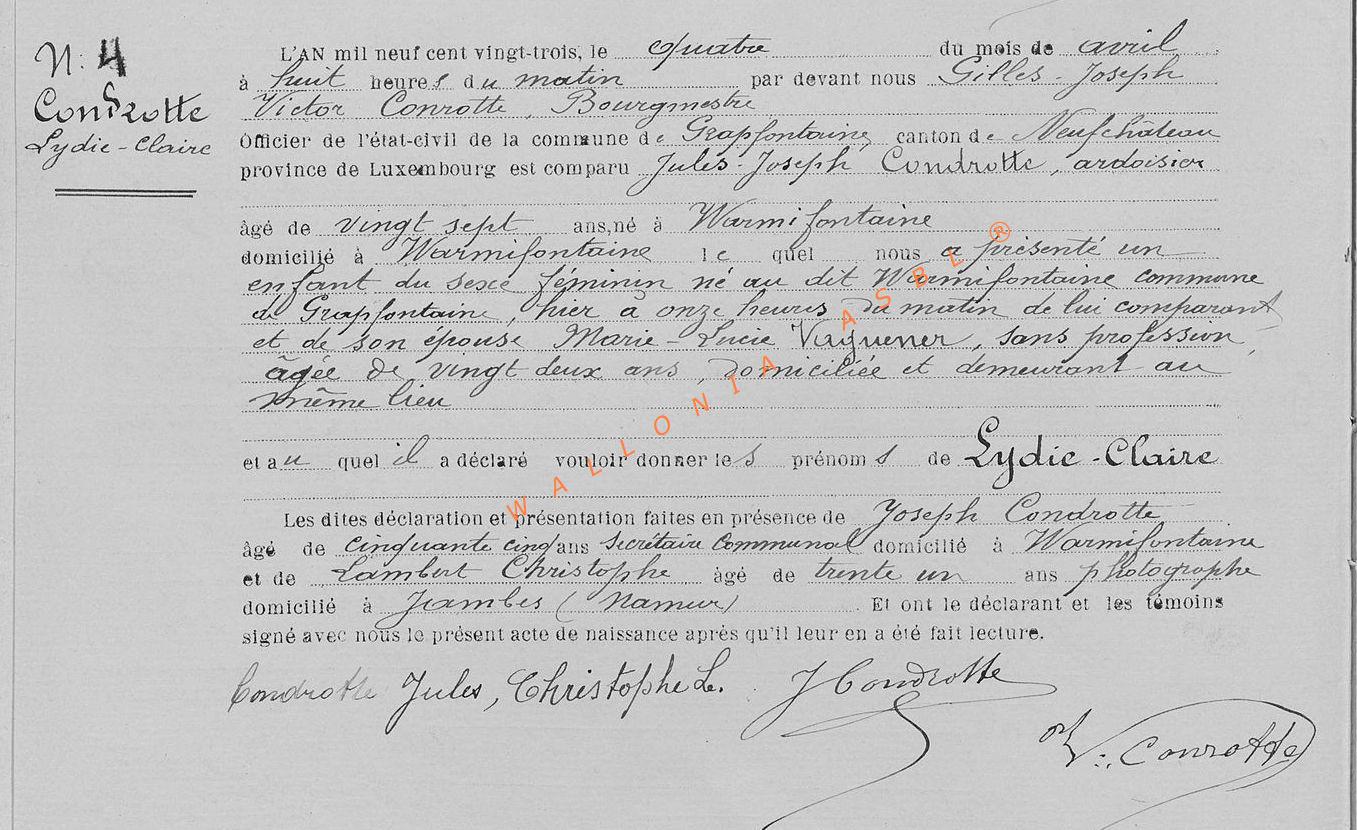 N: 4
Condrotte
Lydie-Claire
L'AN mil neuf cent vingt-trois, le quatre du mois de avril
à huit heures du matin par devant nous Gilles-Joseph
Victor Conrotte, Bourgmestre
Officier de l'état-civil de la commune de Grapfontaine, canton de Neufchâteau
province de Luxembourg est comparu Jules-Joseph Condrotte, ardoisier
âgé de vingt sept ans, né à Warmifontaine
domicilié à Warmifontaine le quel nous a présenté un
enfant du sexe féminin né au dit Warmifontaine commune
de Grapfontaine, hier à onze heures du matin de lui comparant
et de son épouse Marie-Lucie Vaguener, sans profession,
âgée de vingt deux ans, domiciliée et demeurant au
même lieu
et au quel il a déclaré vouloir donner les prénoms de Lydie-Claire
Les dites déclaration et présentation faites en présence de Joseph Condrotte
âgé de cinquante cinq ans Secrétaire Communal domicilié à Warmifontaine
et de Lambert Christophe âgé de trente un ans photographe
domicilié à Jambes (Namur). Et ont le déclarant et les témoins
signé avec nous le présent acte de naissance après qu'il leur en a été fait lecture.
Condrotte Jules, Christophe L. J Condrotte
V. Conrotte
WALLONIA ASBL ®